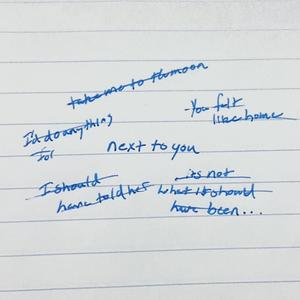 take me to the moon
I'd do anything
for
You felt
like home
next to you
I should
have told her
its not
what it should
have been...